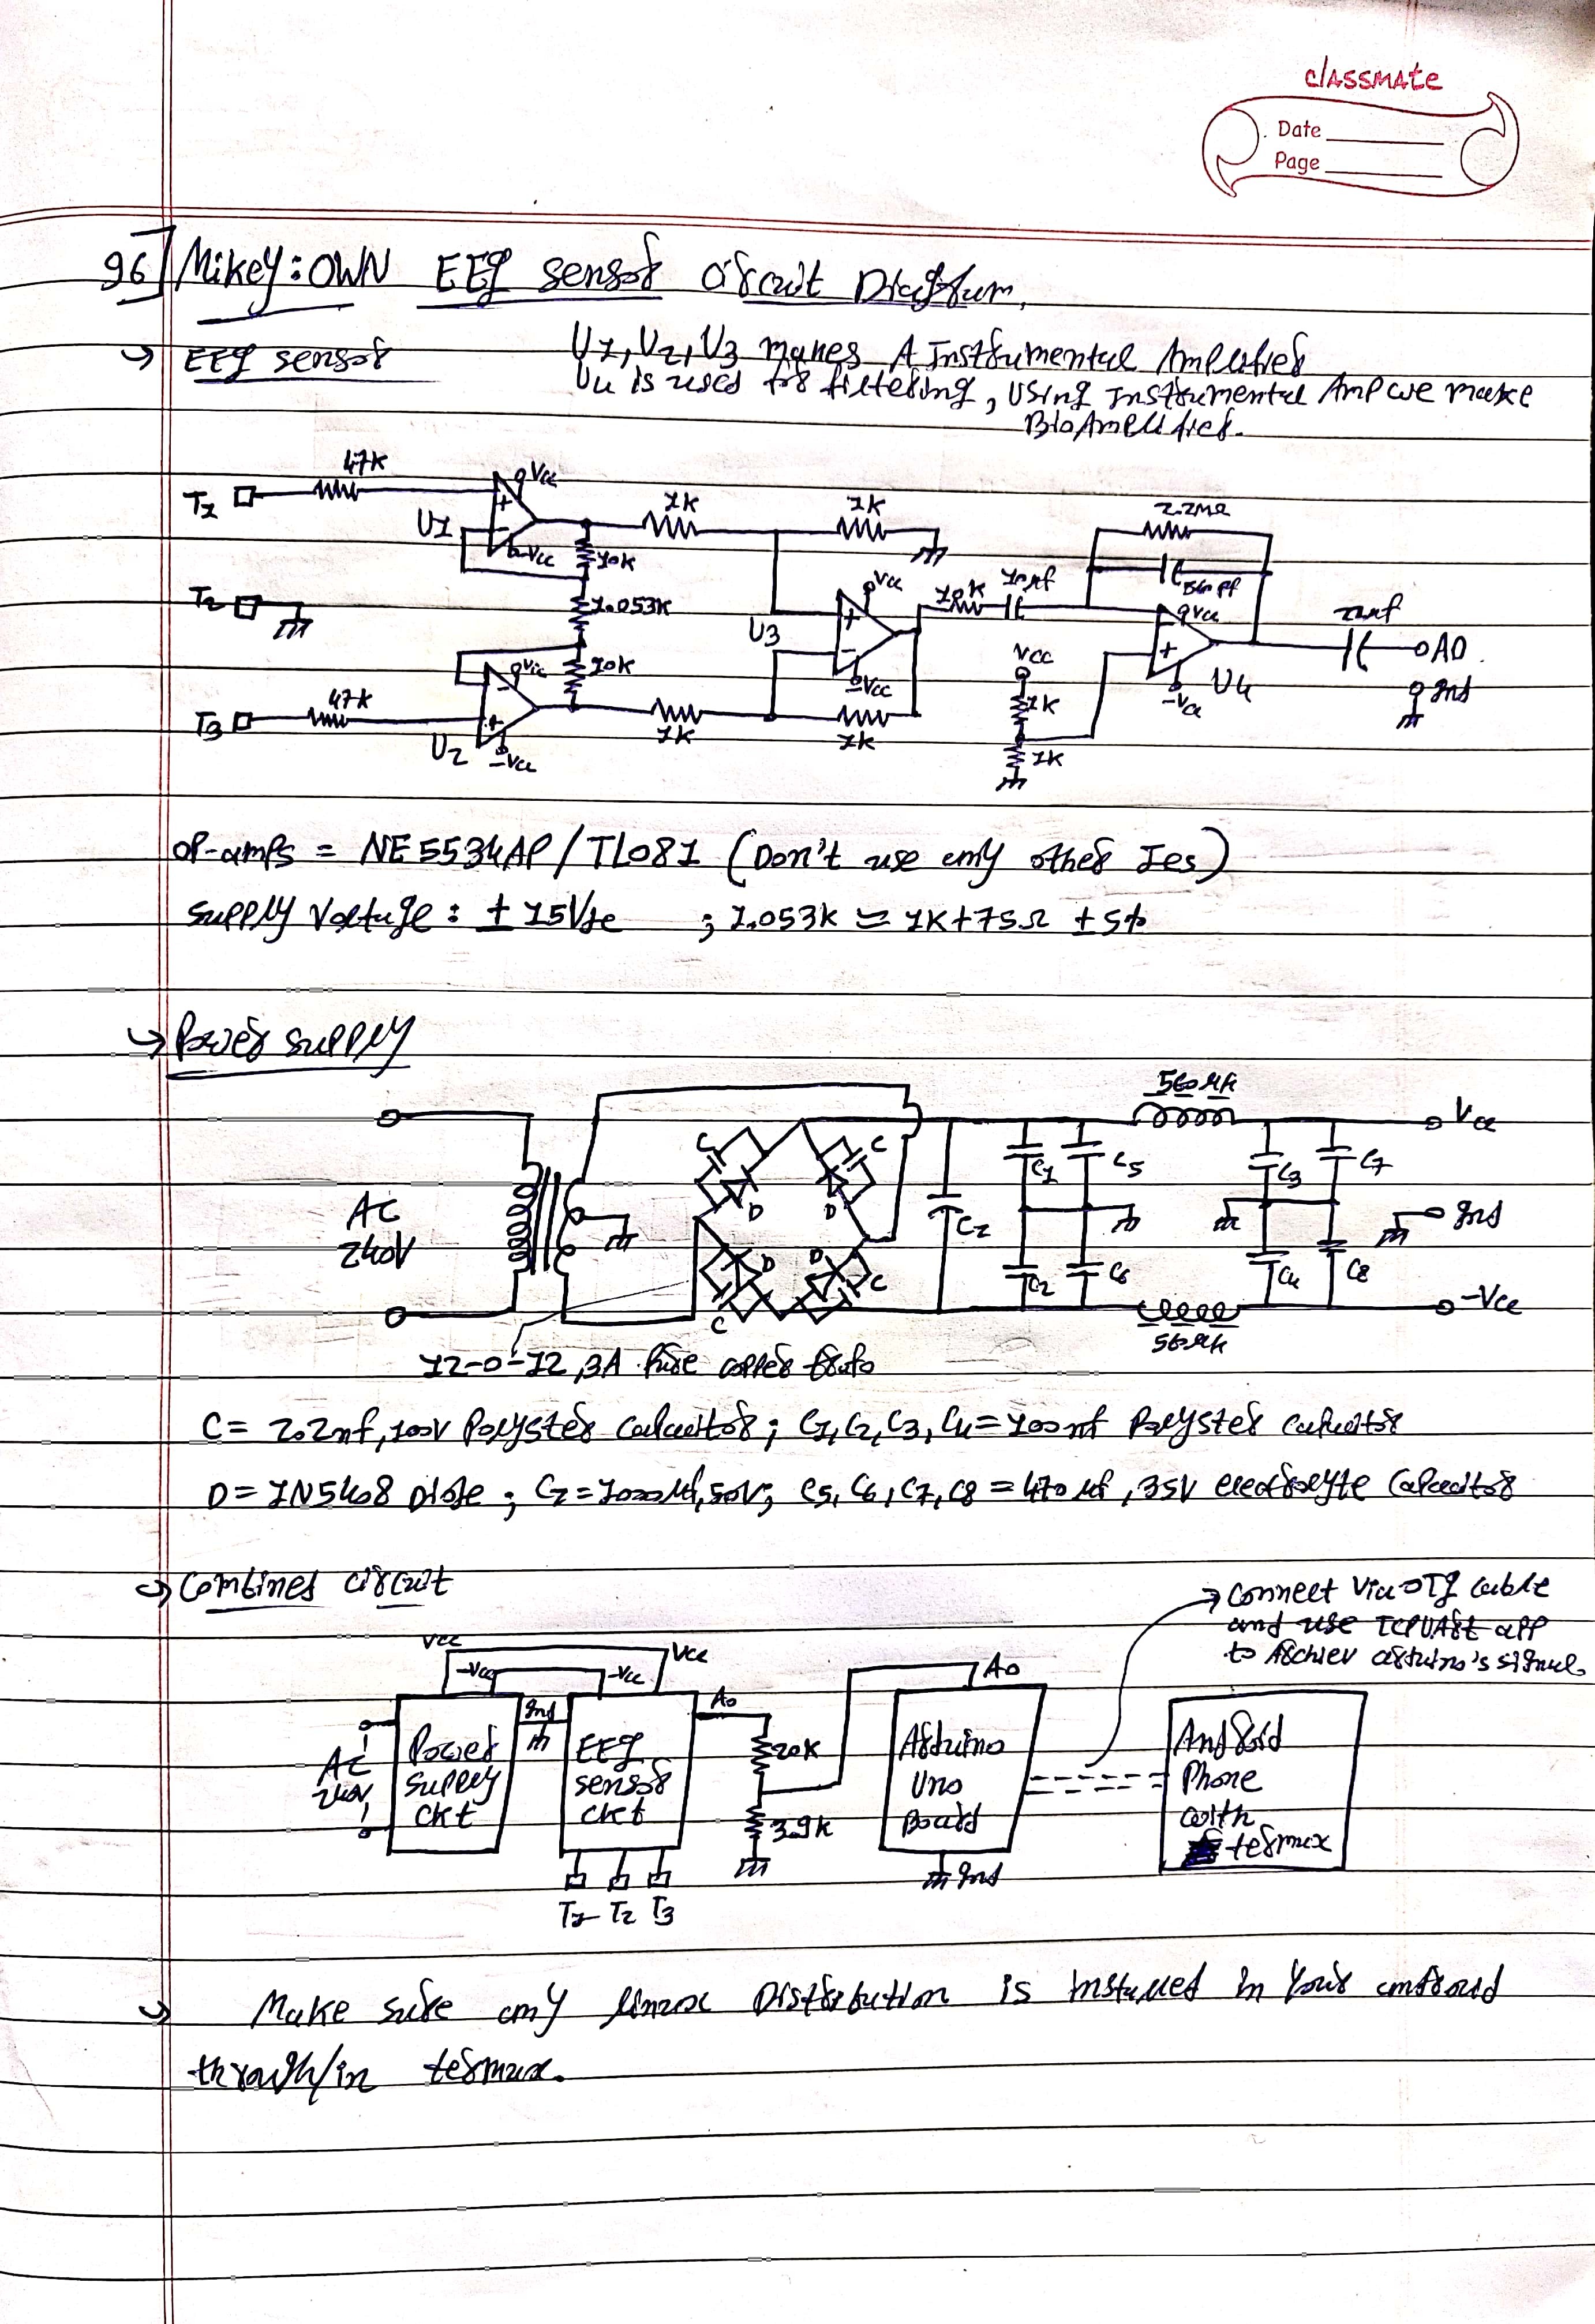 classmate
Date
Page
96] Mikey: OWN EEG sensor circuit Diagram,
→ EEG sensor
U1, U2, U3 makes A Instrumental Amplifier
U4 is used for filtering, Using Instrumental Amp we make
BioAmplifier.
47K
T1
Vcc
U1
-Vcc
1K
1K
2.2MΩ
10K
T2
1.053K
10K
Vcc
10K
10μf
560pf
Vcc
U3
-Vcc
Vcc
1K
1K
U4
-Vcc
A0
Gnd
T3
47K
Vcc
U2
-Vcc
1K
1K
OP-amps = NE5534AP/TL081 (Don't use any other Ics)
Supply Voltage: ± 15Vdc ; 1.053K ≃ 1K+75Ω ±5%
→ Power supply
560μH
Vcc
AC
240V
C
C
D
D
D
D
C
C
Cz
C1
C5
C2
C6
C3
C7
C4
C8
Gnd
-Vcc
560μH
12-0-12, 3A Pure copper
C = 2.2nf, 100V Polyster Capacitor; C1, C2, C3, C4 = 100nf Polyster Capacitor
D = 1N5408 Diode; Cz = 1000μf, 50V; C5, C6, C7, C8 = 470μf, 35V electrolyte Capacitor
→ Combined circuit
→ Connect Via OTG cable
and use TCPUART app
to Achiev arduino's signal.
Vcc
Vcc
-Vcc
-Vcc
Gnd
AC
240V
Power
supply
ckt
EEG
sensor
ckt
A0
20K
3.9K
A0
Arduino
Uno
Board
Gnd
Android
Phone
with
termux
T1 T2 T3
→ Make sure any linux Distribution is installed in Your android
through/in termux.